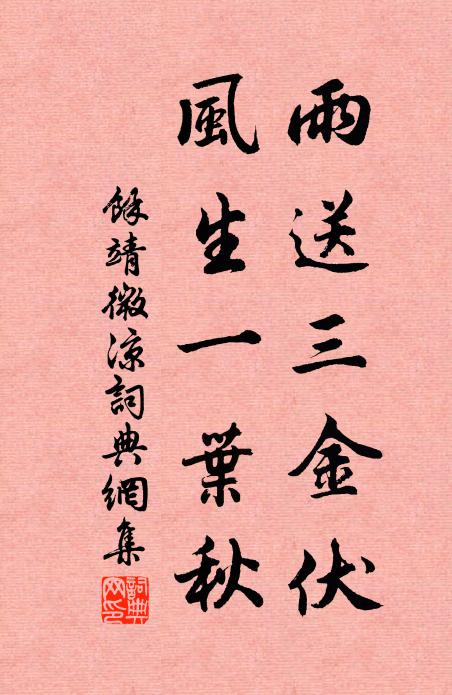 雨送三金伏
風生一葉秋
餘靖微涼詞典網集
詞典网印